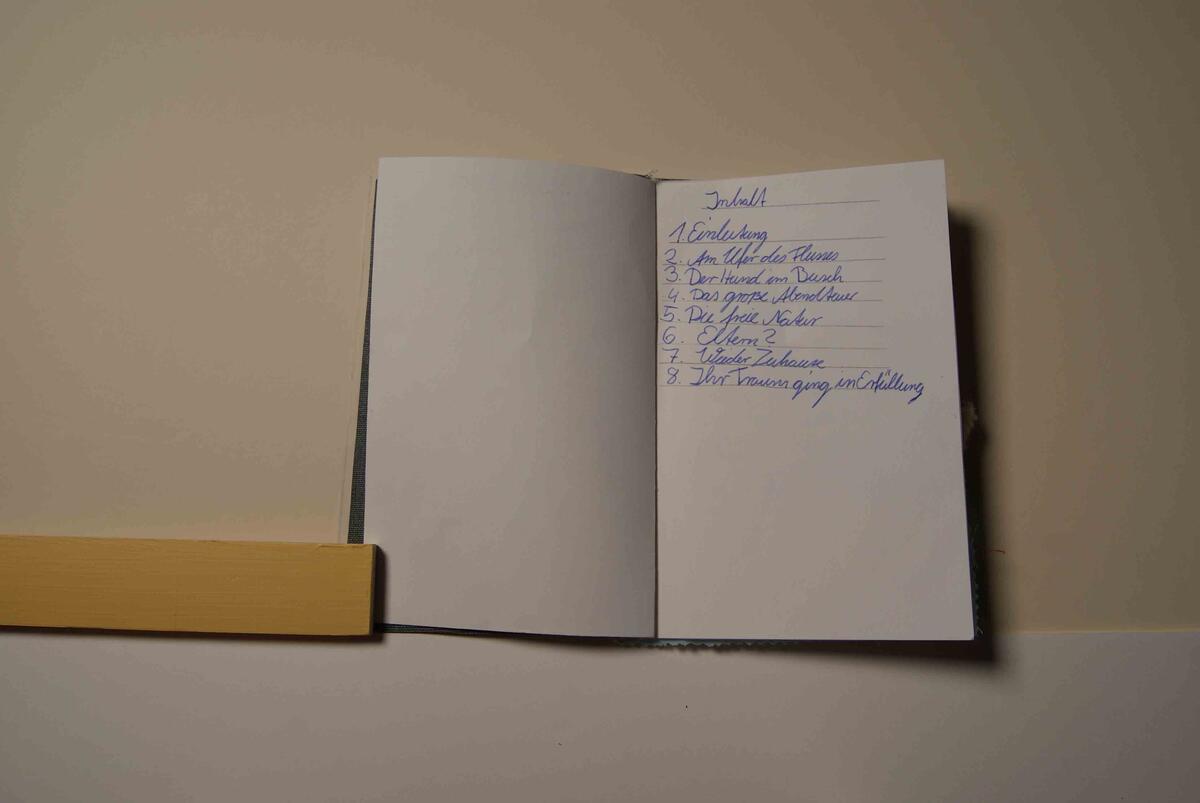 Inhalt
1. Einleitung
2. Am Ufer des Flusses
3. Der Hund im Busch
4. Das große Abendteuer
5. Die freie Natur
6. Eltern?
7. Wieder Zuhause
8. Ihr Traum ging in Erfüllung